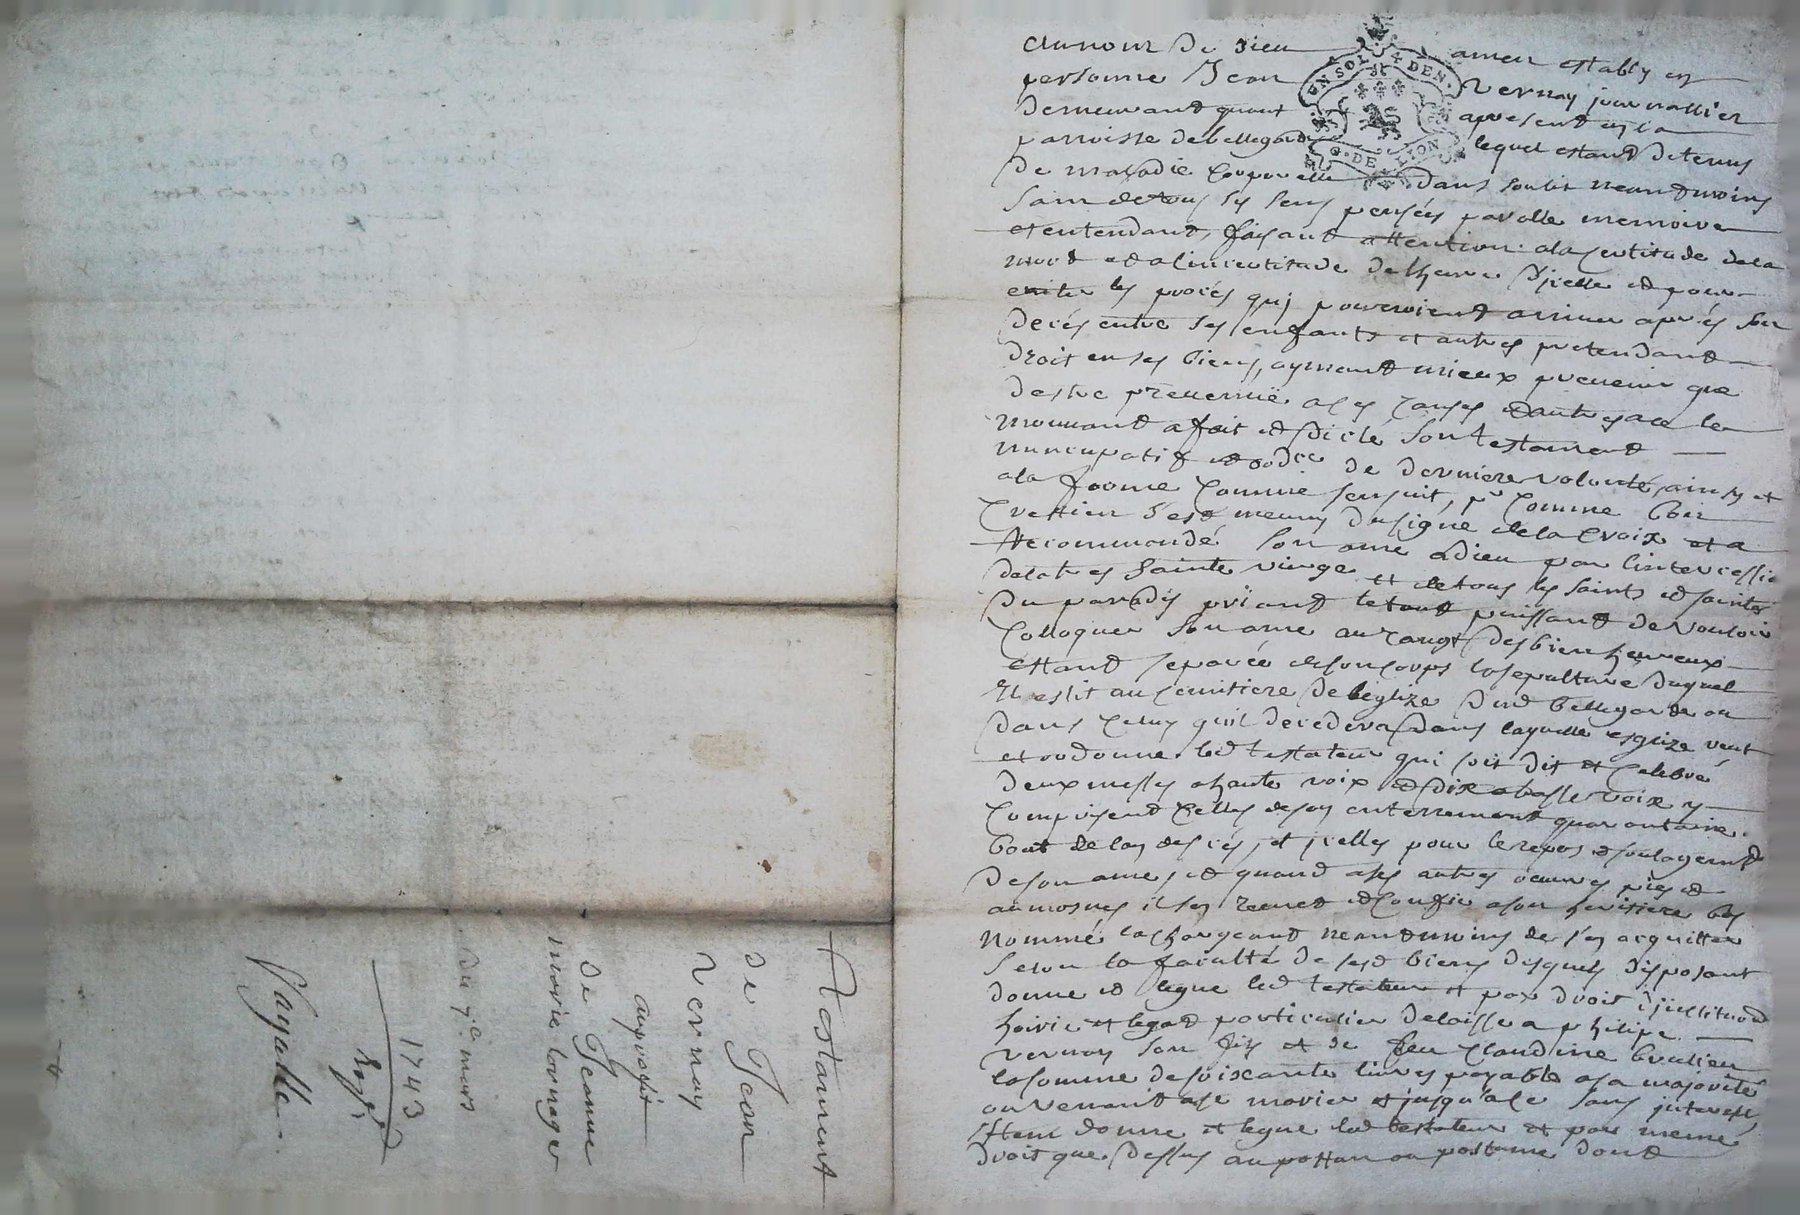 Au nom de Dieu amen estably en
personne Jean Vernay journallier
demeurant quant apresent en la
parroisse de bellegarde lequel estant detenus
de maladie corporelle dans son lit neantmoins
sain de tous ses sens pensées parolle memoire
et entendant, faisant attention a la certitude de la
mort et a l'incertitude de lheure d'jcelle et pour
eviter les procès quj pourroient arriver après son
decès entre ses enfants et autres pretendant
droit en ses biens, aymant mieux prevenir que
destre prevenüe a ces causes et autres a ce le
mouvant a fait et dicté son testament
nuncupatif et ordce de derniere volonté ainsy et
a la forme comme sensuit, pr comme bon
crestien s'est meuny du signe de la Croix et a
Recommandé son ame a Dieu par lintercessio
de la tres sainte vierge et de tous les saints et saintes
du paradis priant le tout puissant de vouloir
colloquer son ame au rangt des bien heureux
estant separée de son corps la sepulture duquel
Il eslit au cemitiere de léglize dud bellegarde ou
dans celuy quil decedera dans laquelle esglize veut
et ordonne led testateur qui soit dit et celebré
deux messes a haute voix et dix a basse voix y
comprisent celles de son enterrement quarantaine
bout de lan de ces, et jcelles pour le repos et soulagemt
de son ame, et quand a ses autres oeuvres pies et
aumosnes il s'en remet et confie a son heritiere bas
nommé la chargeant neantmoins de s'en acquitter
selon la faculté de sesd biens desquels disposant
donne et legue led testateur et par droit d'jnstitution
hoirie et legat particulier delaisse a philipe
vernay son fils et de feu Claudine brulien
la somme de soixcante livres payable a sa majorité
ou venant a se marier et jusqu'a ce sans jnterest
Item donne et legue led testateur et par meme
droit que dessus au posttun ou postume dont
UN SOL 4 DEN.
G. DE LYON
Testament
de Jean
Vernay
auproffit
de Jeanne
marie
du 7e mars
1743
Expd